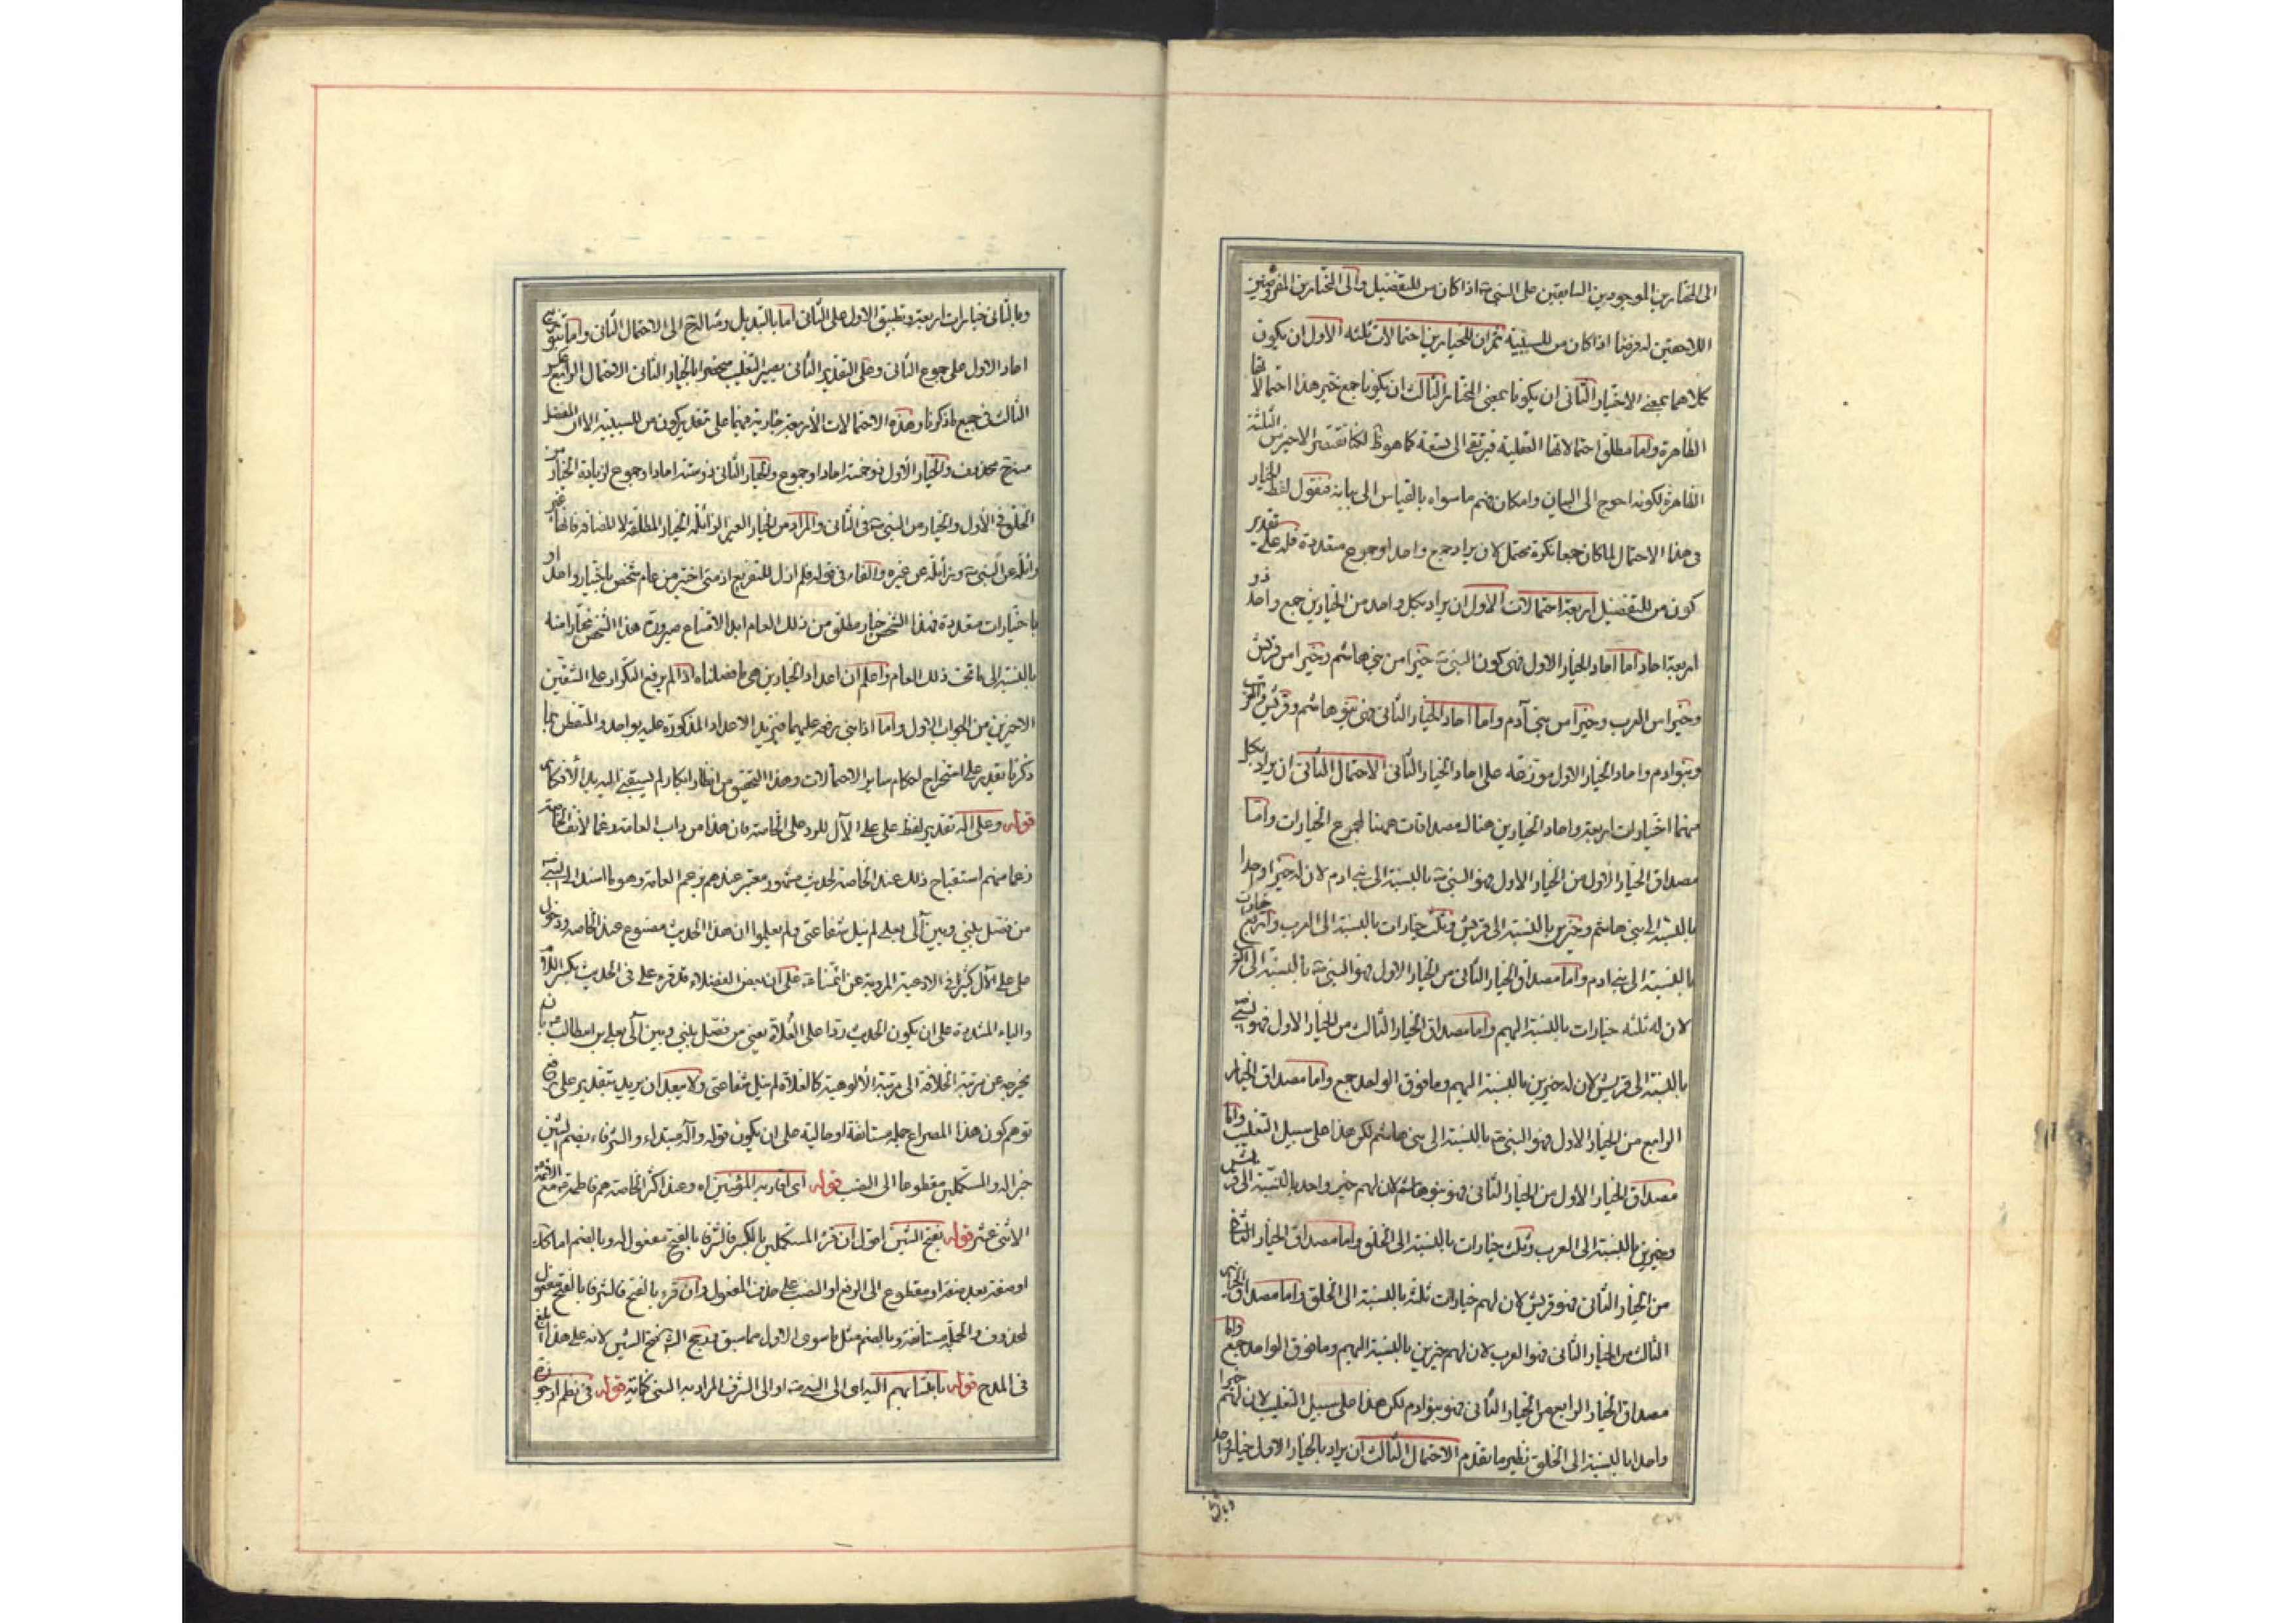 الى المختارين الموجودين السابقين على النبي ص اذا كان من للتفضيل والى المختارين المفروضين
اللاحقين له فرضا اذا كان من للسببية ثم ان للخيارين احتمالات ثلثه الاول ان يكون
كلاهما بمعنى الاختيار الثاني ان يكونا بمعنى المختار الثالث ان يكونا جمع خير هذا احتمالاتها
الظاهرة واما مطلق احتمالاتها العقلية فيرتقي الى تسعة كما هو ظ لكنا نقتصر الاخير من الثلثة
الظاهرة لكونه احوج الى البيان وامكان فهم ما سواه بالقياس الى بيانه فنقول لفظ الخيار
في هذا الاحتمال لما كان جمعا نكرة محتمل لان يراد جمع واحد او جموع متعددة فله على تقدير
كون من للتفضيل اربعة احتمالات الاول ان يراد بكل واحد من الخيارين جمع واحد ذو
اربعة احاد اما احاد الخيار الاول فهى كون النبي ص خيرا من بني هاشم وخيرا من قريش
وخيرا من العرب وخيرا من بني آدم واما احاد الخيار الثاني فهى بنو هاشم وقريش والعرب
وبنو ادم واحاد الخيار الاول موزعة على احاد الخيار الثاني الاحتمال الثاني ان يراد بكل
منهما اختيارات اربعة واحاد الخيارين هناك مصداقات ههنا لجموع الخيارات واما
مصداق الخيار الاول من الخيار الاول فهو النبي ص بالنسبة الى بني ادم لان له خيرا واحدا
بالنسبة الى بني هاشم وخيرين بالنسبة الى قريش وثلث خيارات بالنسبة الى العرب واربع خيارات
بالنسبة الى بني ادم واما مصداق الخيار الثاني من الخيار الاول فهو النبي ص بالنسبة الى العرب
لان له ثلثه خيارات بالنسبة اليهم واما مصداق الخيار الثالث من الخيار الاول فهو النبي ص
بالنسبة الى قريش لان له خيرين بالنسبة اليهم وما فوق الواحد جمع واما مصداق الخيار
الرابع من الخيار الاول فهو النبي ص بالنسبة الى بني هاشم لكن هذا على سبيل التغليب واما
مصداق الخيار الاول من الخيار الثاني فهو بنو هاشم لان لهم خير واحد بالنسبة الى قريش
وخيرين بالنسبة الى العرب وثلث خيارات بالنسبة الى الخلق واما مصداق الخيار الثاني
من الخيار الثاني فهو قريش لان لهم خيارات ثلثة بالنسبة الى الخلق واما مصداق الخيار
الثالث من الخيار الثاني فهو العرب لان لهم خيرين بالنسبة اليهم وما فوق الواحد جمع واما
مصداق الخيار الرابع من الخيار الثاني فهو بنو ادم لكن هذا على سبيل التغليب لان لهم خيرا
واحدا بالنسبة الى الخلق نظير ما تقدم الاحتمال الثالث ان يراد بالخيار الاول خيار واحد
وبالثاني
وبالثاني خيارات اربعة وتطبيق الاول على الثاني اما بالتبديل ومئاله ح الى الاحتمال الثاني واما بتوزيع
احاد الاول على جموع الثاني وعلى التقدير الثاني يصير التغليب مختصا بالخيار الثاني الاحتمال الرابع عكس
الثالث في جميع ما ذكرنا وهذه الاحتمالات الأربعة جارية فيهما على تقدير كون من للسببية الا ان المفضل
منه ح محذوف والخيار الأول ذو خمسة احاد او جموع والخيار الثاني ذو ستة احاد او جموع لزيادة الخيار من
الخلق في الأول والخيار من النبي ص في الثاني والمراد من الخيار الغير الزائله الخيار المطلقة لا المضافة فانها غير
زائلة عن النبي ص وزائلة عن غيره والفاء في قوله فلم ازل للتفريع اذ متى اختير من عام شخص باختيار واحد او
باختيارات متعددة فهذا الشخص خيار مطلق من ذلك العام ابدا لامتناع صيرورة هذا الشخص مختارا منه
بالنسبة الى ما تحت ذلك العام واعلم ان اعداد الخيارين هى ما فصلناه اذا لم يرفع التكرار على الشقين
الاخيرين من الجواب الاول واما اذا بني برفعه عليهما فيزيد الاعداد المذكورة عليه بواحد والمتفطن بما
ذكرنا يقدر على استخراج احكام ساير الاحتمالات وهذا التحقيق من انظار ابكار لم يسبقني اليه يد الأفكار
قوله وعلى اله تقدير لفظ على على الآل للرد على الخاصة فان هذا من داب العامة رغما لأنف الخاصة
زعما منهم استقباح ذلك عند الخاصة لحديث مشهور معتبر عندهم بزعم العامة وهو ما اسند الى النبي ص
من فصل بيني وبين آلى بعلى لم ينل شفاعتي ولم يعلموا ان هذا الحديث مصنوع عند الخاصة ودخول
على على الآل كثير في الادعية المروية عن ائمتنا ع على ان بعض الفضلاء قد قرء على في الحديث بكسر اللام
والياء المشددة على ان يكون الحديث ردا على الغلاة يعني من فصل بيني وبين آلى بعلى بن ابيطالب ع بان
يخرجه عن مرتبة الخلافة الى مرتبة الألوهية كالغلاة لم ينل شفاعتي ولا يبعد ان يريد بتقدير على دفع
توهم كون هذا المصراع جملة مستانفة او حالية على ان يكون قوله وآله مبتداء والشرفاء بضم الشين
خبر اله والمستكملين مقطوعا الى النصب قوله اى اقاربه المؤمنين اه وعند اكثر الخاصة هم فاطمة ع مع الائمة
الاثنى عشر قوله بفتح الشين اقول ان قرئ المستكملين بالكسر فالشرفا بالفتح مفعول له وبالضم اما كك
او صفة بعد صفة او مقطوع الى الرفع او النصب على حذف المفعول وان قرء بالفتح فالشرفا بالفتح مفعول
لمحذوف والجملة مستانفة وبالضم مثل ما سوى الاول مما سبق ورجح الش فتح الشين لانه على هذا ابلغ
في المدح قوله بانتسابهم اليه اى الى النبي ص او الى الشرف المراد به النبي كناية قوله في نظم ارجوزة